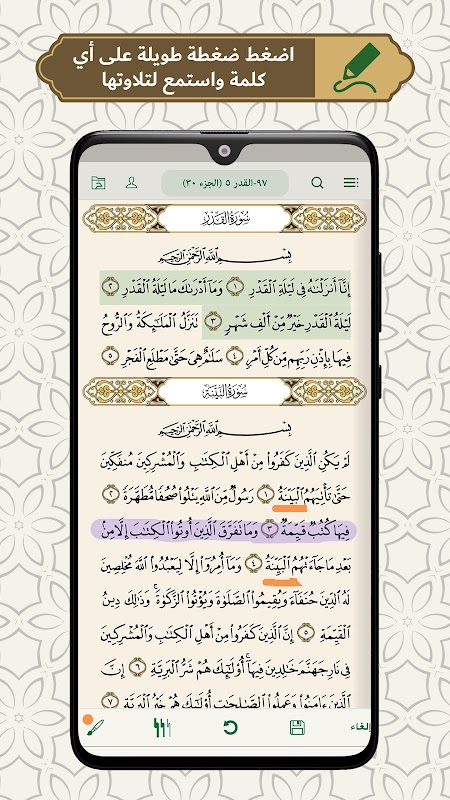 اضغط ضغطة طويلة على أي
كلمة واستمع لتلاوتها
٩٧-القدر ٥ (الجزء ٣٠)
سُورَةُ القَدْرِ
بِسْمِ اللَّهِ الرَّحْمَٰنِ الرَّحِيمِ
إِنَّا أَنزَلْنَٰهُ فِي لَيْلَةِ الْقَدْرِ ١ وَمَا أَدْرَىٰكَ مَا لَيْلَةُ الْقَدْرِ ٢
لَيْلَةُ الْقَدْرِ خَيْرٌ مِّنْ أَلْفِ شَهْرٍ ٣ تَنَزَّلُ الْمَلَٰٓئِكَةُ وَالرُّوحُ
فِيهَا بِإِذْنِ رَبِّهِم مِّن كُلِّ أَمْرٍ ٤ سَلَٰمٌ هِيَ حَتَّىٰ مَطْلَعِ الْفَجْرِ ٥
سُورَةُ البَيِّنَةِ
بِسْمِ اللَّهِ الرَّحْمَٰنِ الرَّحِيمِ
لَمْ يَكُنِ الَّذِينَ كَفَرُوا مِنْ أَهْلِ الْكِتَٰبِ وَالْمُشْرِكِينَ مُنفَكِّينَ
حَتَّىٰ تَأْتِيَهُمُ الْبَيِّنَةُ ١ رَسُولٌ مِّنَ اللَّهِ يَتْلُوا صُحُفًا مُّطَهَّرَةً ٢
فِيهَا كُتُبٌ قَيِّمَةٌ ٣ وَمَا تَفَرَّقَ الَّذِينَ أُوتُوا الْكِتَٰبَ إِلَّا مِنۢ
بَعْدِ مَا جَآءَتْهُمُ الْبَيِّنَةُ ٤ وَمَا أُمِرُوا إِلَّا لِيَعْبُدُوا اللَّهَ مُخْلِصِينَ
لَهُ الدِّينَ حُنَفَآءَ وَيُقِيمُوا الصَّلَوٰةَ وَيُؤْتُوا الزَّكَوٰةَ وَذَٰلِكَ دِينُ
الْقَيِّمَةِ ٥ إِنَّ الَّذِينَ كَفَرُوا مِنْ أَهْلِ الْكِتَٰبِ وَالْمُشْرِكِينَ
فِي نَارِ جَهَنَّمَ خَٰلِدِينَ فِيهَا أُولَٰٓئِكَ هُمْ شَرُّ الْبَرِيَّةِ ٦ إِنَّ
الَّذِينَ ءَامَنُوا وَعَمِلُوا الصَّٰلِحَٰتِ أُولَٰٓئِكَ هُمْ خَيْرُ الْبَرِيَّةِ ٧
إلغاء